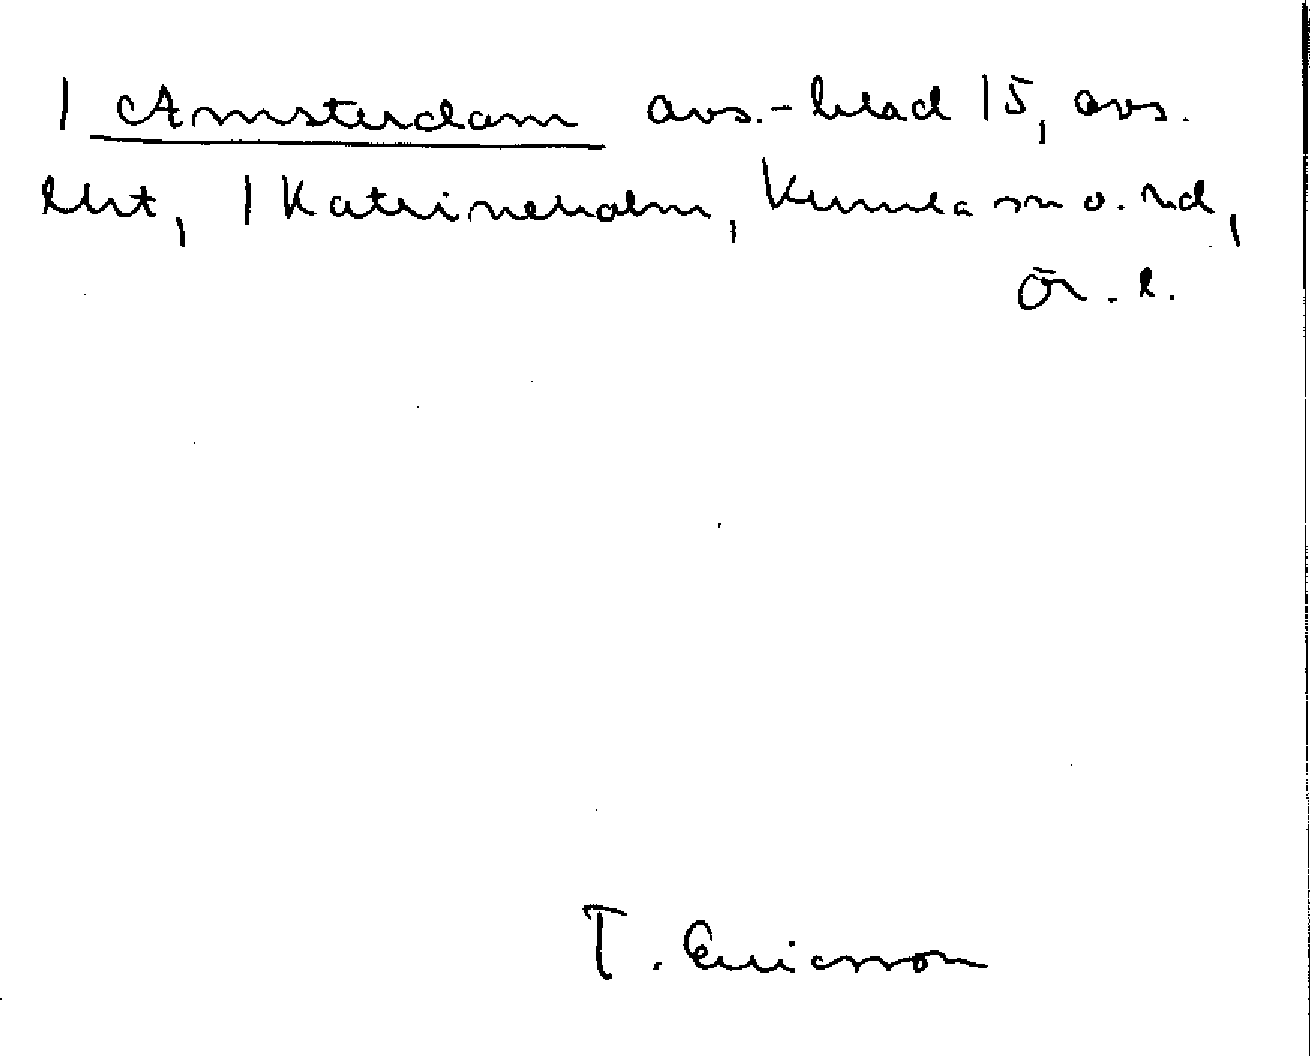 I Amsterdam avs.-blad 15, avs.
Ekt, I Katrineholm, Kumla sn o. hd,
Ör. l.
T. Ericsson